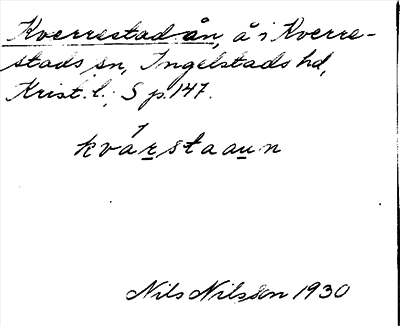 Kverrestadån, å i Kverre-
stads sn, Ingelstads hd,
Krist. l., S p. 147.
kvárstaaun
Nils Nilsson 1930